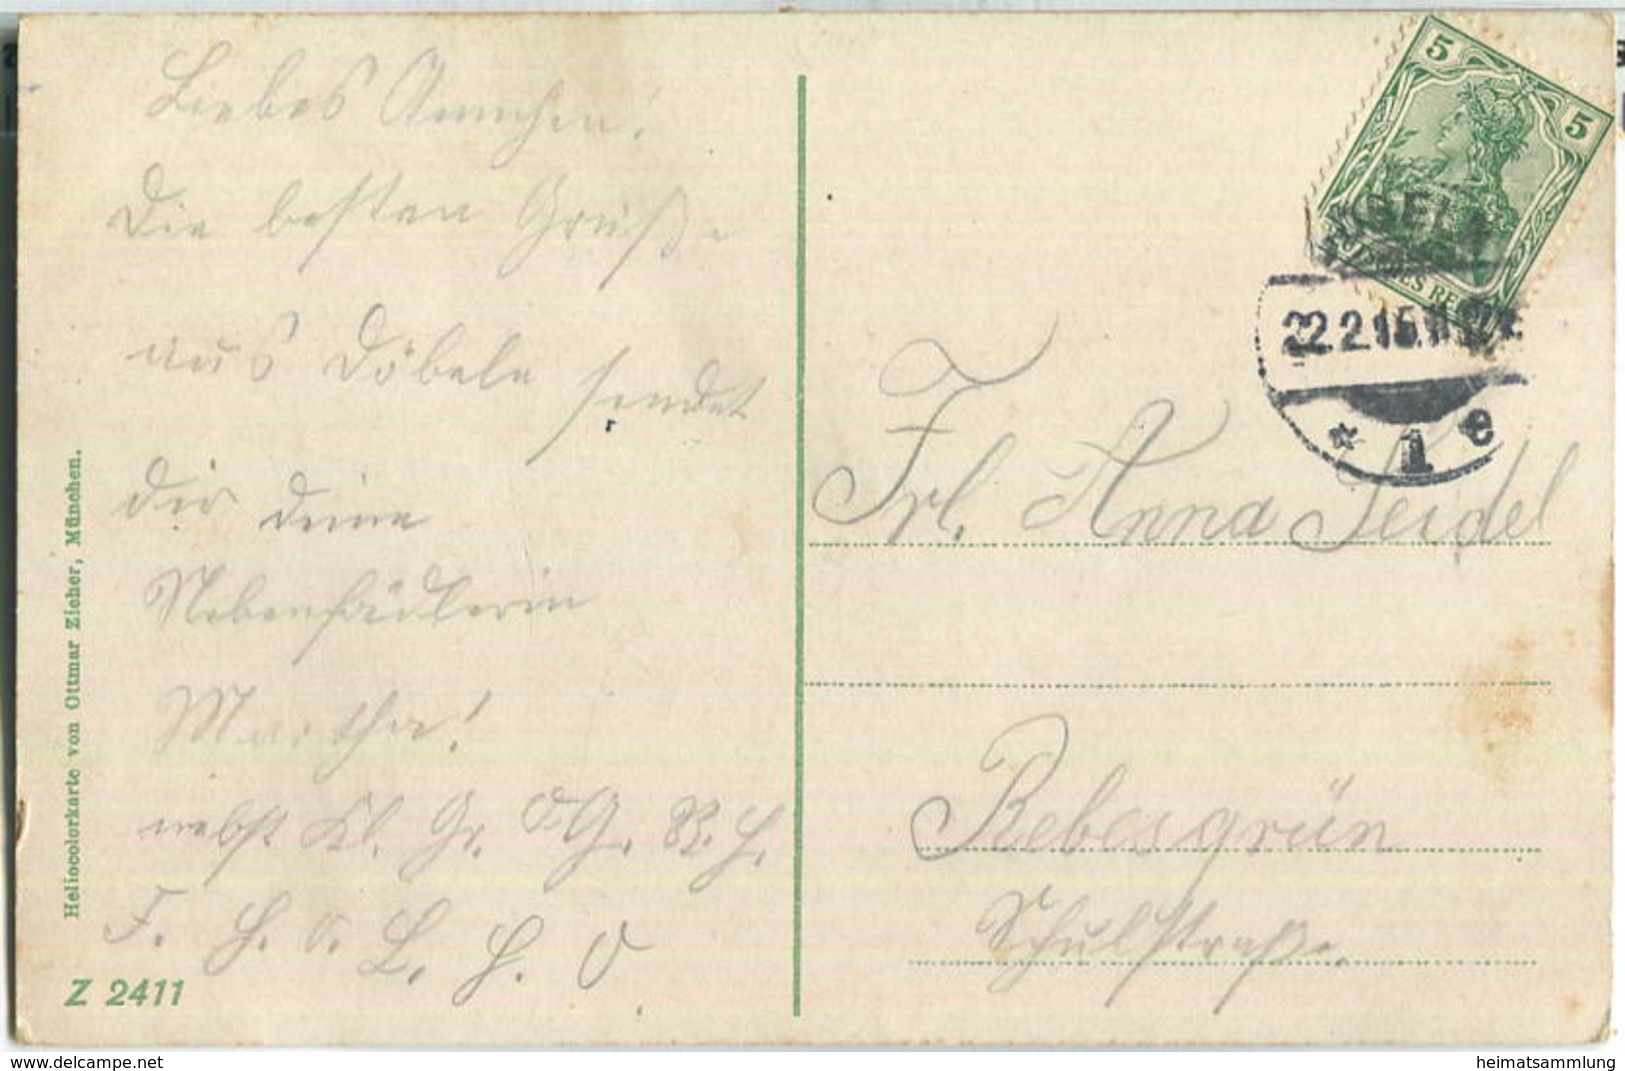 Liebes Annchen!
Die besten Grüße
aus Döbeln sendet
Dir deine
Martha!
nebst Kl. Gr. O. G. B. H.
F. H. O. L. H. O.
Heliocolorkarte von Ottmar Zieher, München.
Z 2411
5 5
22.2.15
* 1 e
Frl. Anna Seidel
Rebesgrün
Schulstraße.
delcampe.net
heimatsammlung